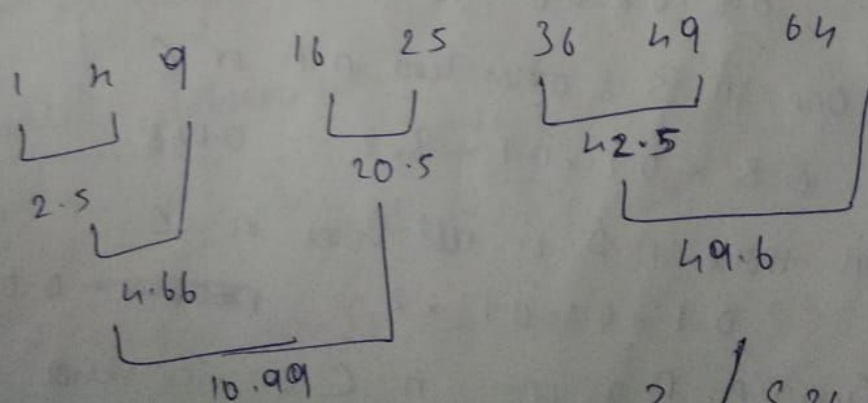 1 4 9 16 25 36 49 64
2.5 20.5 42.5
4.66 49.6
10.99
2